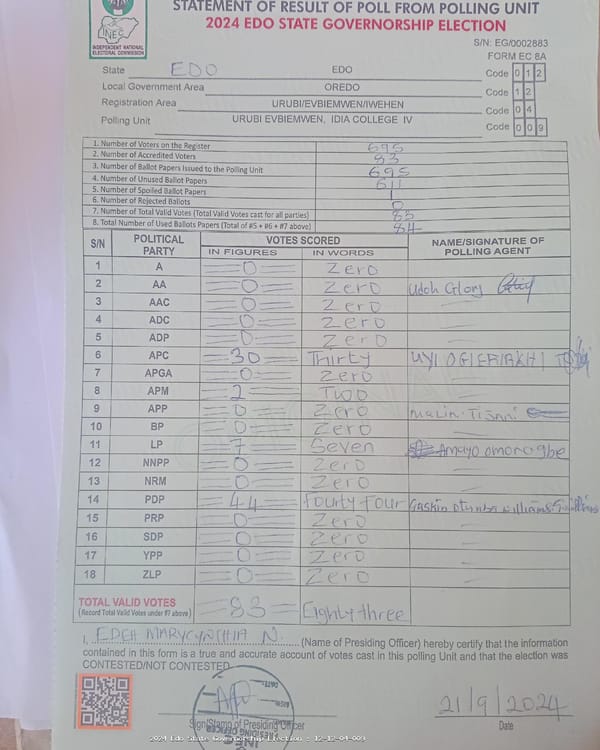 STATEMENT OF RESULT OF POLL FROM POLLING UNIT
2024 EDO STATE GOVERNORSHIP ELECTION
INEC
INDEPENDENT NATIONAL
ELECTORAL COMMISSION
S/N: EG/0002883
FORM EC 8A
State EDO EDO Code 0 1 2
Local Government Area OREDO Code 1 2
Registration Area URUBI/EVBIEMWEN/IWEHEN Code 0 4
Polling Unit URUBI EVBIEMWEN, IDIA COLLEGE IV Code 0 0 9
1. Number of Voters on the Register 695
2. Number of Accredited Voters 83
3. Number of Ballot Papers Issued to the Polling Unit 695
4. Number of Unused Ballot Papers 611
5. Number of Spoiled Ballot Papers 1
6. Number of Rejected Ballots 0
7. Number of Total Valid Votes (Total Valid Votes cast for all parties) 83
8. Total Number of Used Ballots Papers (Total of #5 + #6 + #7 above) 84
S/N POLITICAL PARTY VOTES SCORED NAME/SIGNATURE OF POLLING AGENT
IN FIGURES IN WORDS
1 A 0 Zero
2 AA 0 Zero Udoh Glory
3 AAC 0 Zero
4 ADC 0 Zero
5 ADP 0 Zero
6 APC 30 Thirty UYI
7 APGA 0 Zero
8 APM 2 Two
9 APP 0 Zero
10 BP 0 Zero
11 LP 7 Seven Amayo omoregbe
12 NNPP 0 Zero
13 NRM 0 Zero
14 PDP 44 Fourty Four williams
15 PRP 0 Zero
16 SDP 0 Zero
17 YPP 0 Zero
18 ZLP 0 Zero
TOTAL VALID VOTES 83 Eighty three
(Record Total Valid Votes under #7 above)
I, EDEH MARYCYNTHIA N. (Name of Presiding Officer) hereby certify that the information
contained in this form is a true and accurate account of votes cast in this polling Unit and that the election was
CONTESTED/NOT CONTESTED
21/9/2024
Sign/Stamp of Presiding Officer Date
2024 Edo State Governorship Election - 12-12-04-009